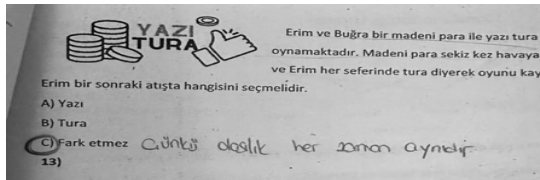 YAZI
TURA
Erim ve Buğra bir madeni para ile yazı tura
oynamaktadır. Madeni para sekiz kez havaya
ve Erim her seferinde tura diyerek oyunu kay
Erim bir sonraki atışta hangisini seçmelidir.
A) Yazı
B) Tura
C) Fark etmez Çünkü olasılık her zaman aynıdır.
13)